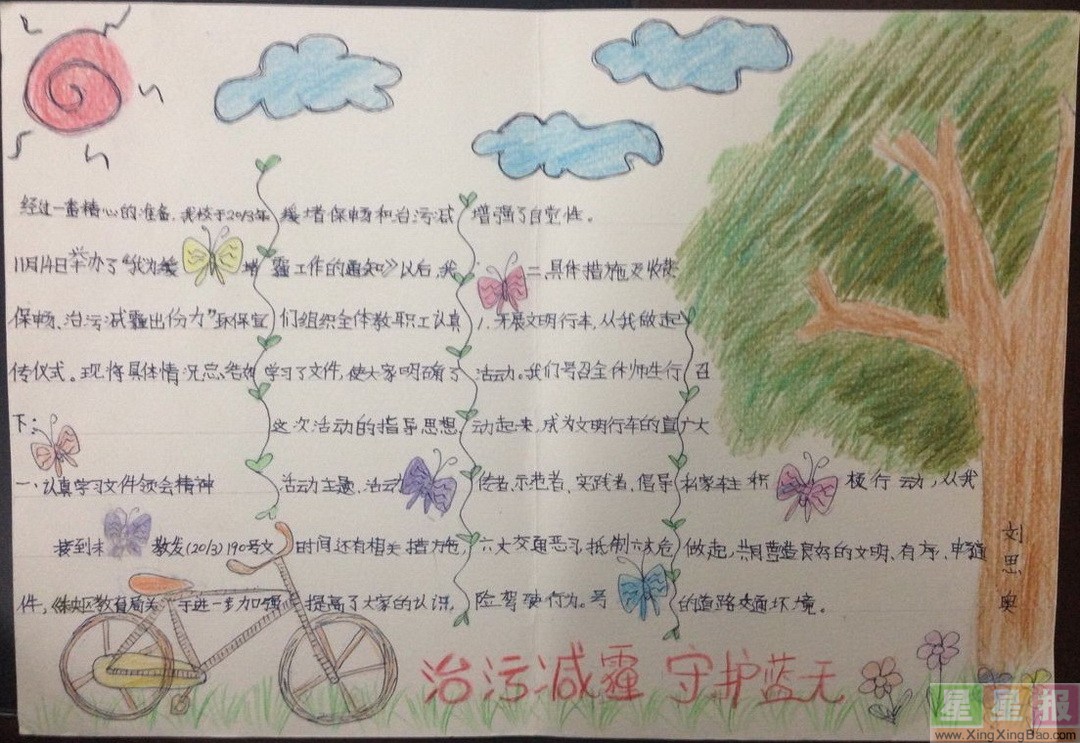 经过一番精心的准备,我校于2013年
11月14日举办了“我为缓堵
保畅、治污减霾出份力”环保宣
传仪式。现将具体情况总结如
下:
一、认真学习文件领会精神
接到未教发(2013)190号文
件,《未央区教育局关于进一步加强
缓堵保畅和治污减
霾工作的通知》以后,我
们组织全体教职工认真
学习了文件,使大家明确了
这次活动的指导思想
活动主题、活动
时间还有相关措施,
提高了大家的认识,
增强了自觉性。
二、具体措施及收获
1、开展文明行车,从我做起
活动。我们号召全体师生行
动起来,成为文明行车的宣
传者、示范者、实践者、倡导
六大交通恶习,抵制六大危
险驾驶行为。号
召
广大
私家车主积极行动,从我
做起,共同营造良好的文明、有序、畅通
的道路交通环境。
刘思奥
治污减霾 守护蓝天
星星报
www.XingXingBao.com